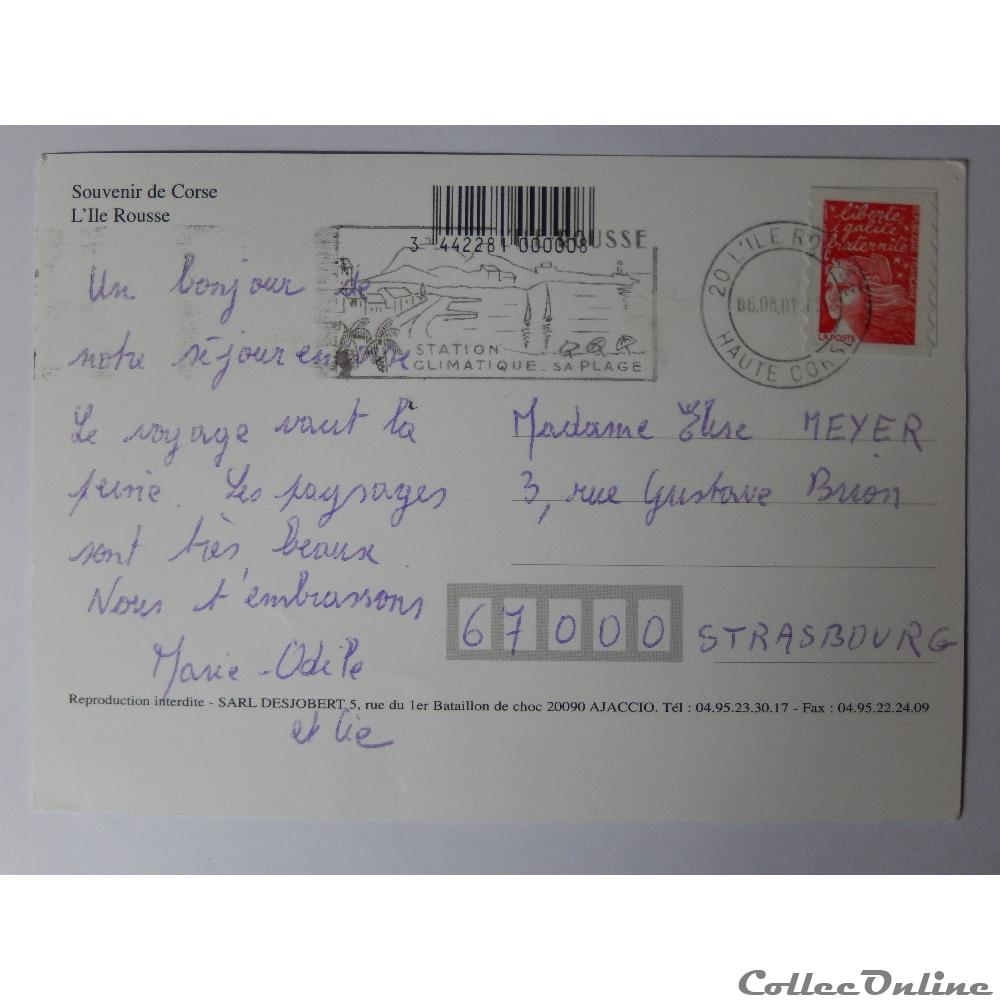 Souvenir de Corse
L'Ile Rousse
3 442281 000008
ROUSSE
STATION
CLIMATIQUE. SA PLAGE
20 L'ILE R
06.08.01
HAUTE CORSE
liberté
égalité
fraternité
LA POSTE
Un bonjour de
notre séjour en
Le voyage vaut la
peine. Les paysages
sont très beaux
Nous t'embrassons
Marie-Odile
et Cie
Madame Elise MEYER
3, rue Gustave Brion
67000 STRASBOURG
Reproduction interdite - SARL DESJOBERT 5, rue du 1er Bataillon de choc 20090 AJACCIO. Tél : 04.95.23.30.17 - Fax : 04.95.22.24.09
CollecOnline